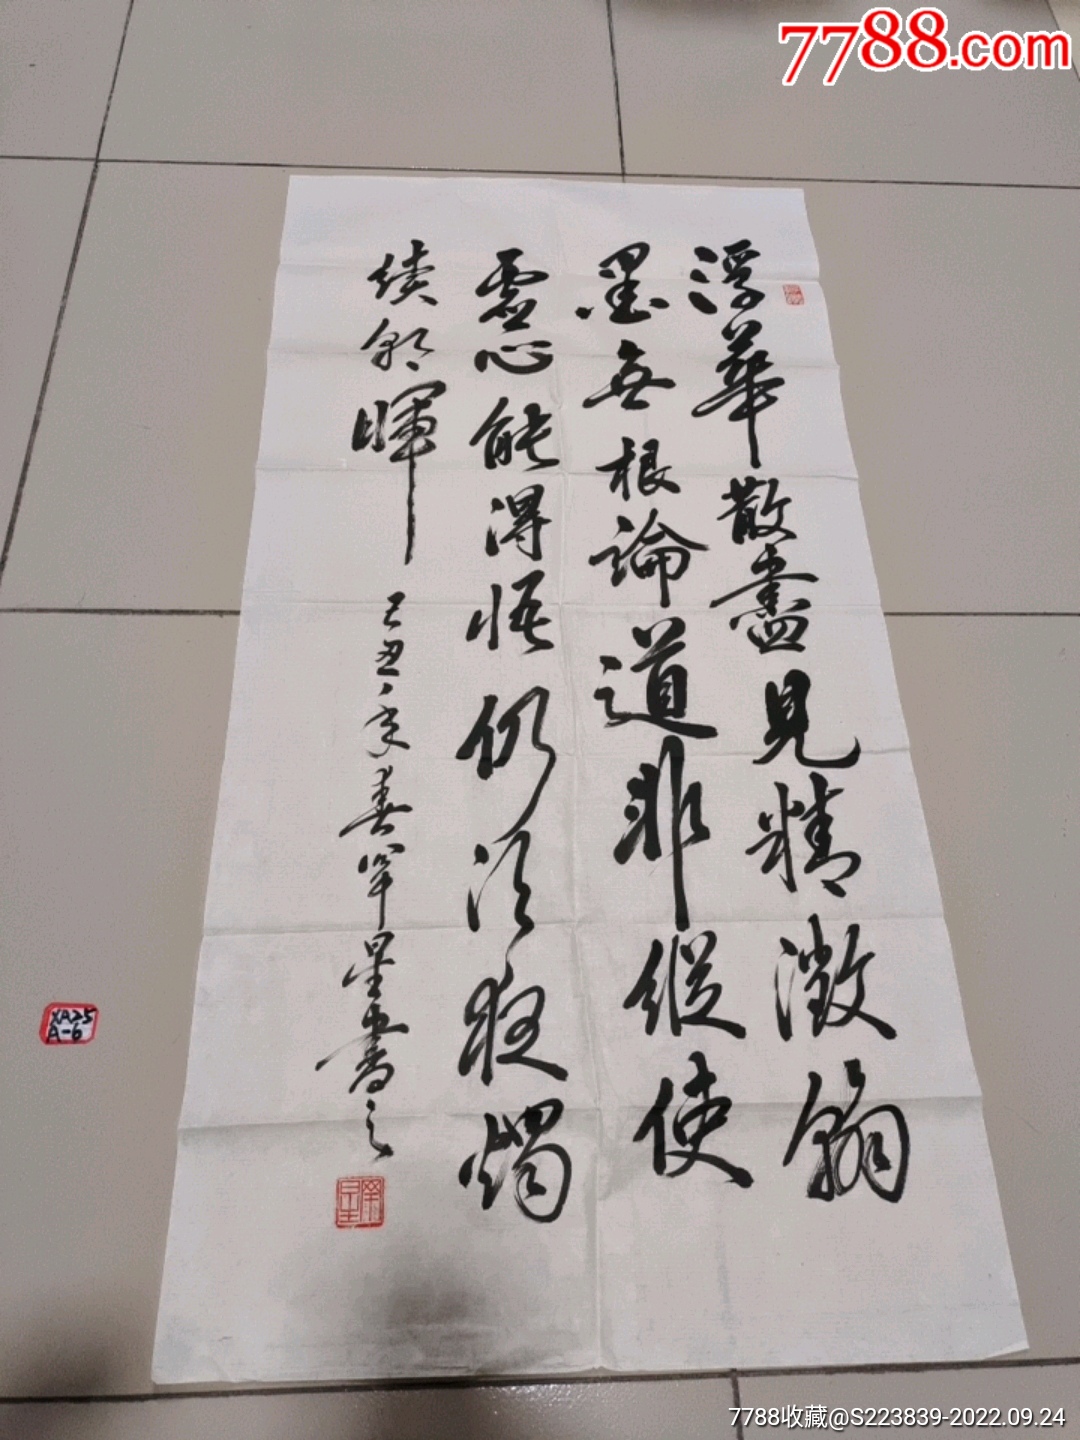 7788.com
浮華散盡見精微翰
墨無根論道非縱使
虛心能得悟仍須夜燭
续朝暉
己丑年春罕星書之
XA25
A-6
7788收藏@S223839-2022.09.24